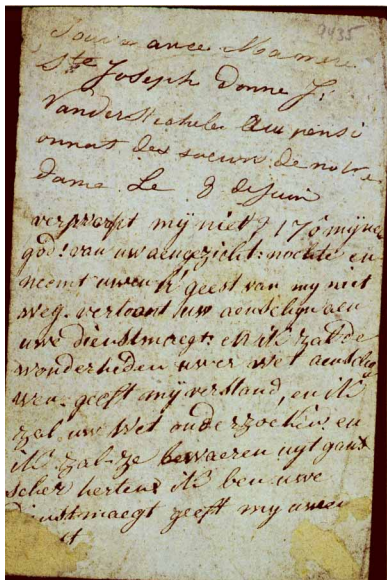 9435
Souvenance Mamère
Ste Joseph Donne J:
Vanderstichele Au pensi
onnat des soeurs de notre
dame Le 8 de Juin
verwerpt mij niet mijne
god! van uw aengezicht: nochte en
neemt uwen h: geest van mij niet
weg. vertoont uw aenschijn aen
uwe dienstmaegt: en ik zal de
wonderheden uwer wet aenschou
wen. geeft mij verstand, en ik
zal uw wet onderzoeken: en
ik zal ze bewaeren uyt gan
scher herten ik ben uwe
dienstmaegt geeft mij uwen